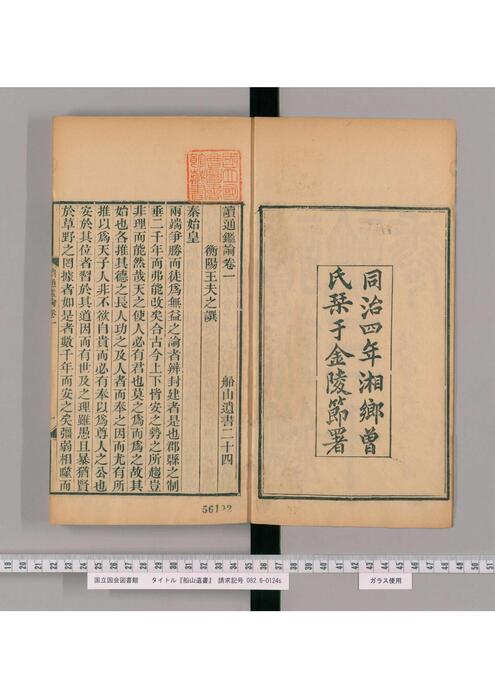 同治四年湘鄉曾
氏栞于金陵節署
國立國
會圖書
館藏書
讀通鑑論卷一 船山遺書二十四
衡陽王夫之譔
秦始皇
兩端爭勝而徒爲無益之論者辨封建者是也郡縣之制
垂二千年而弗能改矣合古今上下皆安之勢之所趨豈
非理而能然哉天之使人必有君也莫之爲而爲之故其
始也各推其德之長人功之及人者而奉之因而尤有所
推以爲天子人非不欲自貴而必有奉以爲尊人之公也
安於其位者習於其道因而有世及之理雖愚且暴猶賢
於草野之罔據者如是者數千年而安之矣彊弱相噬而
讀通鑑論卷一 一
19 20 21 22 23 24 25 26 27 28 29 30 31 32 33 34 35 36 37 38 39 40 41 42 43 44 45 46 47 48 49 50 51
国立国会図書館 タイトル『船山遺書』 請求記号 082.6-0124s
ガラス使用